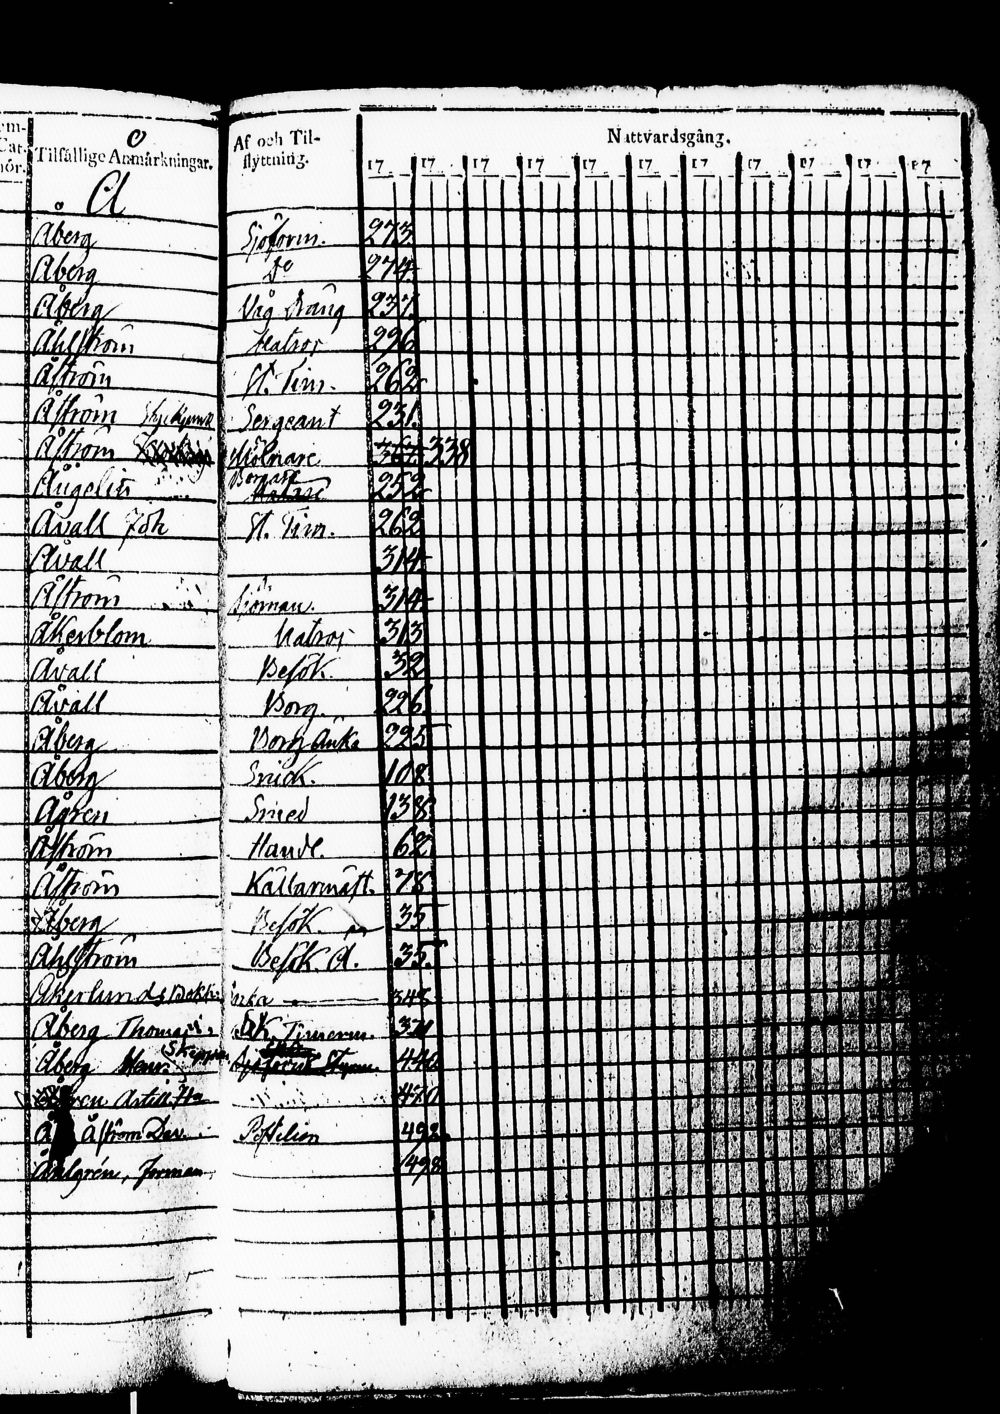 Tilfällige Anmärkningar. Af och Til-flyttning. Nattvardsgång.
17 17 17 17 17 17 17 17 17 17 17
Å
Åberg Sjöform. 273
Åberg Do 274
Åberg Våg Dräng 237
Åhlström Matros 296
Åström St. Tim. 262
Åström Sergeant 231
Åström Mölnare 338
Ångelin Borgare 252
Åvall Joh St. Tim. 262
Åvall 314
Åström Sjöman. 314
Åkerblom Matros 313
Åvall Besök 32
Åvall Borg. 226
Åberg Borg Änka 225
Åberg Snick. 108
Ågren Smed 138
Åström Handl. 62
Åström Källarmäst. 78
Åberg Besök. 35
Åhlström Besök. A. 35
Åkerlunds Enka 348
Åberg Thomas Timerm. 371
Åberg Skeppare Styrm. 440
470
Åström Dav. Postilion 492
Åhlgrén, Forman 498